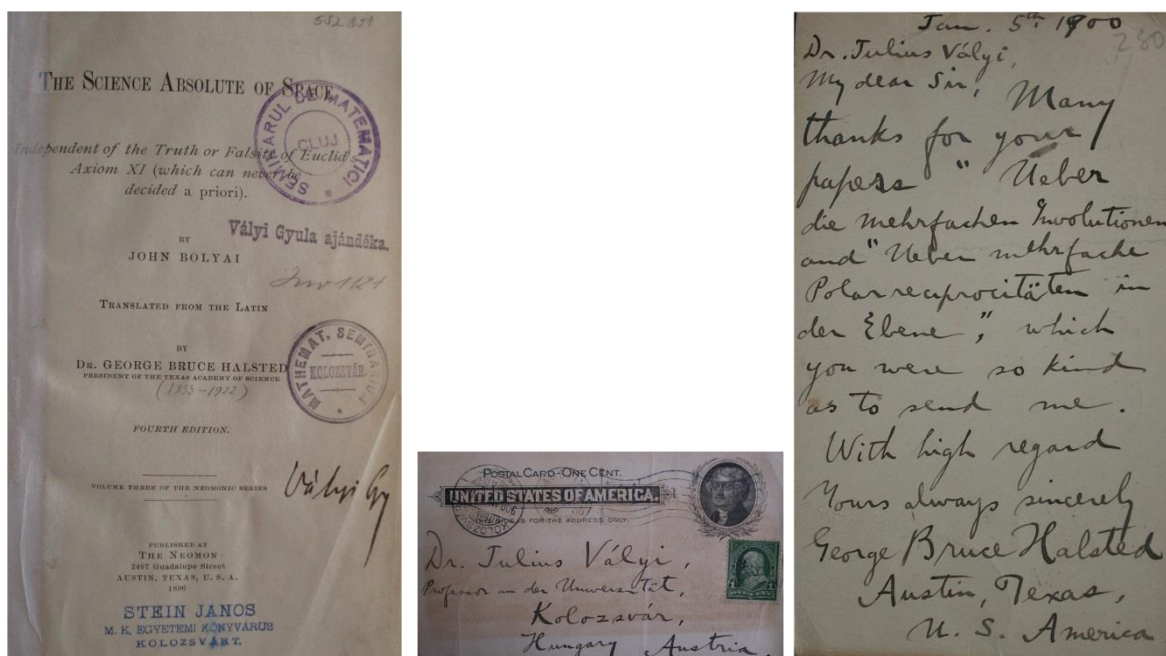 552851
THE SCIENCE ABSOLUTE OF SPACE
Independent of the Truth or Falsity of Euclid's
Axiom XI (which can never be
decided a priori).
SEMINARUL DE MATEMATICI
CLUJ
BY
Vályi Gyula ajándéka.
JOHN BOLYAI
Inv 1121
TRANSLATED FROM THE LATIN
BY
DR. GEORGE BRUCE HALSTED
PRESIDENT OF THE TEXAS ACADEMY OF SCIENCE
(1853-1922)
MATHEMAT. SEMINARIUM
KOLOZSVÁR
FOURTH EDITION.
VOLUME THREE OF THE NEOMONIC SERIES
Vályi Gy
PUBLISHED AT
THE NEOMON
2407 Guadalupe Street
AUSTIN, TEXAS, U. S. A.
1896
STEIN JÁNOS
M. K. EGYETEMI KÖNYVÁRUS
KOLOZSVÁRT.
POSTAL CARD-ONE CENT.
UNITED STATES OF AMERICA.
THIS SIDE IS FOR THE ADDRESS ONLY
Dr. Julius Vályi,
Professor an der Universität,
Kolozsvár,
Hungary Austria.
Jan. 5th 1900
230
Dr. Julius Vályi,
My dear Sir, Many
thanks for your
papers "Ueber
die mehrfachen Involutionen
and "Ueber mehrfache
Polarreciprocitäten in
der Ebene", which
you were so kind
as to send me.
With high regard
Yours always sincerely
George Bruce Halsted
Austin, Texas,
U. S. America